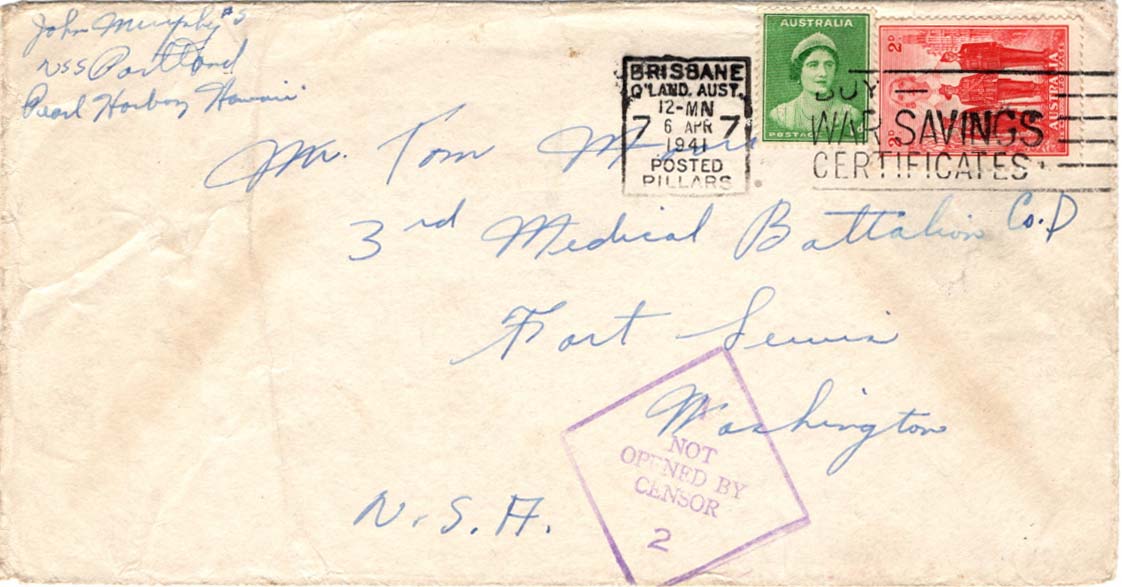 John Murphy #5
USS Portland
Pearl Harbor Hawaii
BRISBANE
Q'LAND. AUST.
12-MN
7 6 APR 7
1941
POSTED
PILLARS
AUSTRALIA
POSTAGE
2D
AUSTRALIA
2D
BUY
WAR SAVINGS
CERTIFICATES
Mr. Tom
3rd Medical Battalion Co. D
Fort Lewis
Washington
U.S.A.
NOT
OPENED BY
CENSOR
2